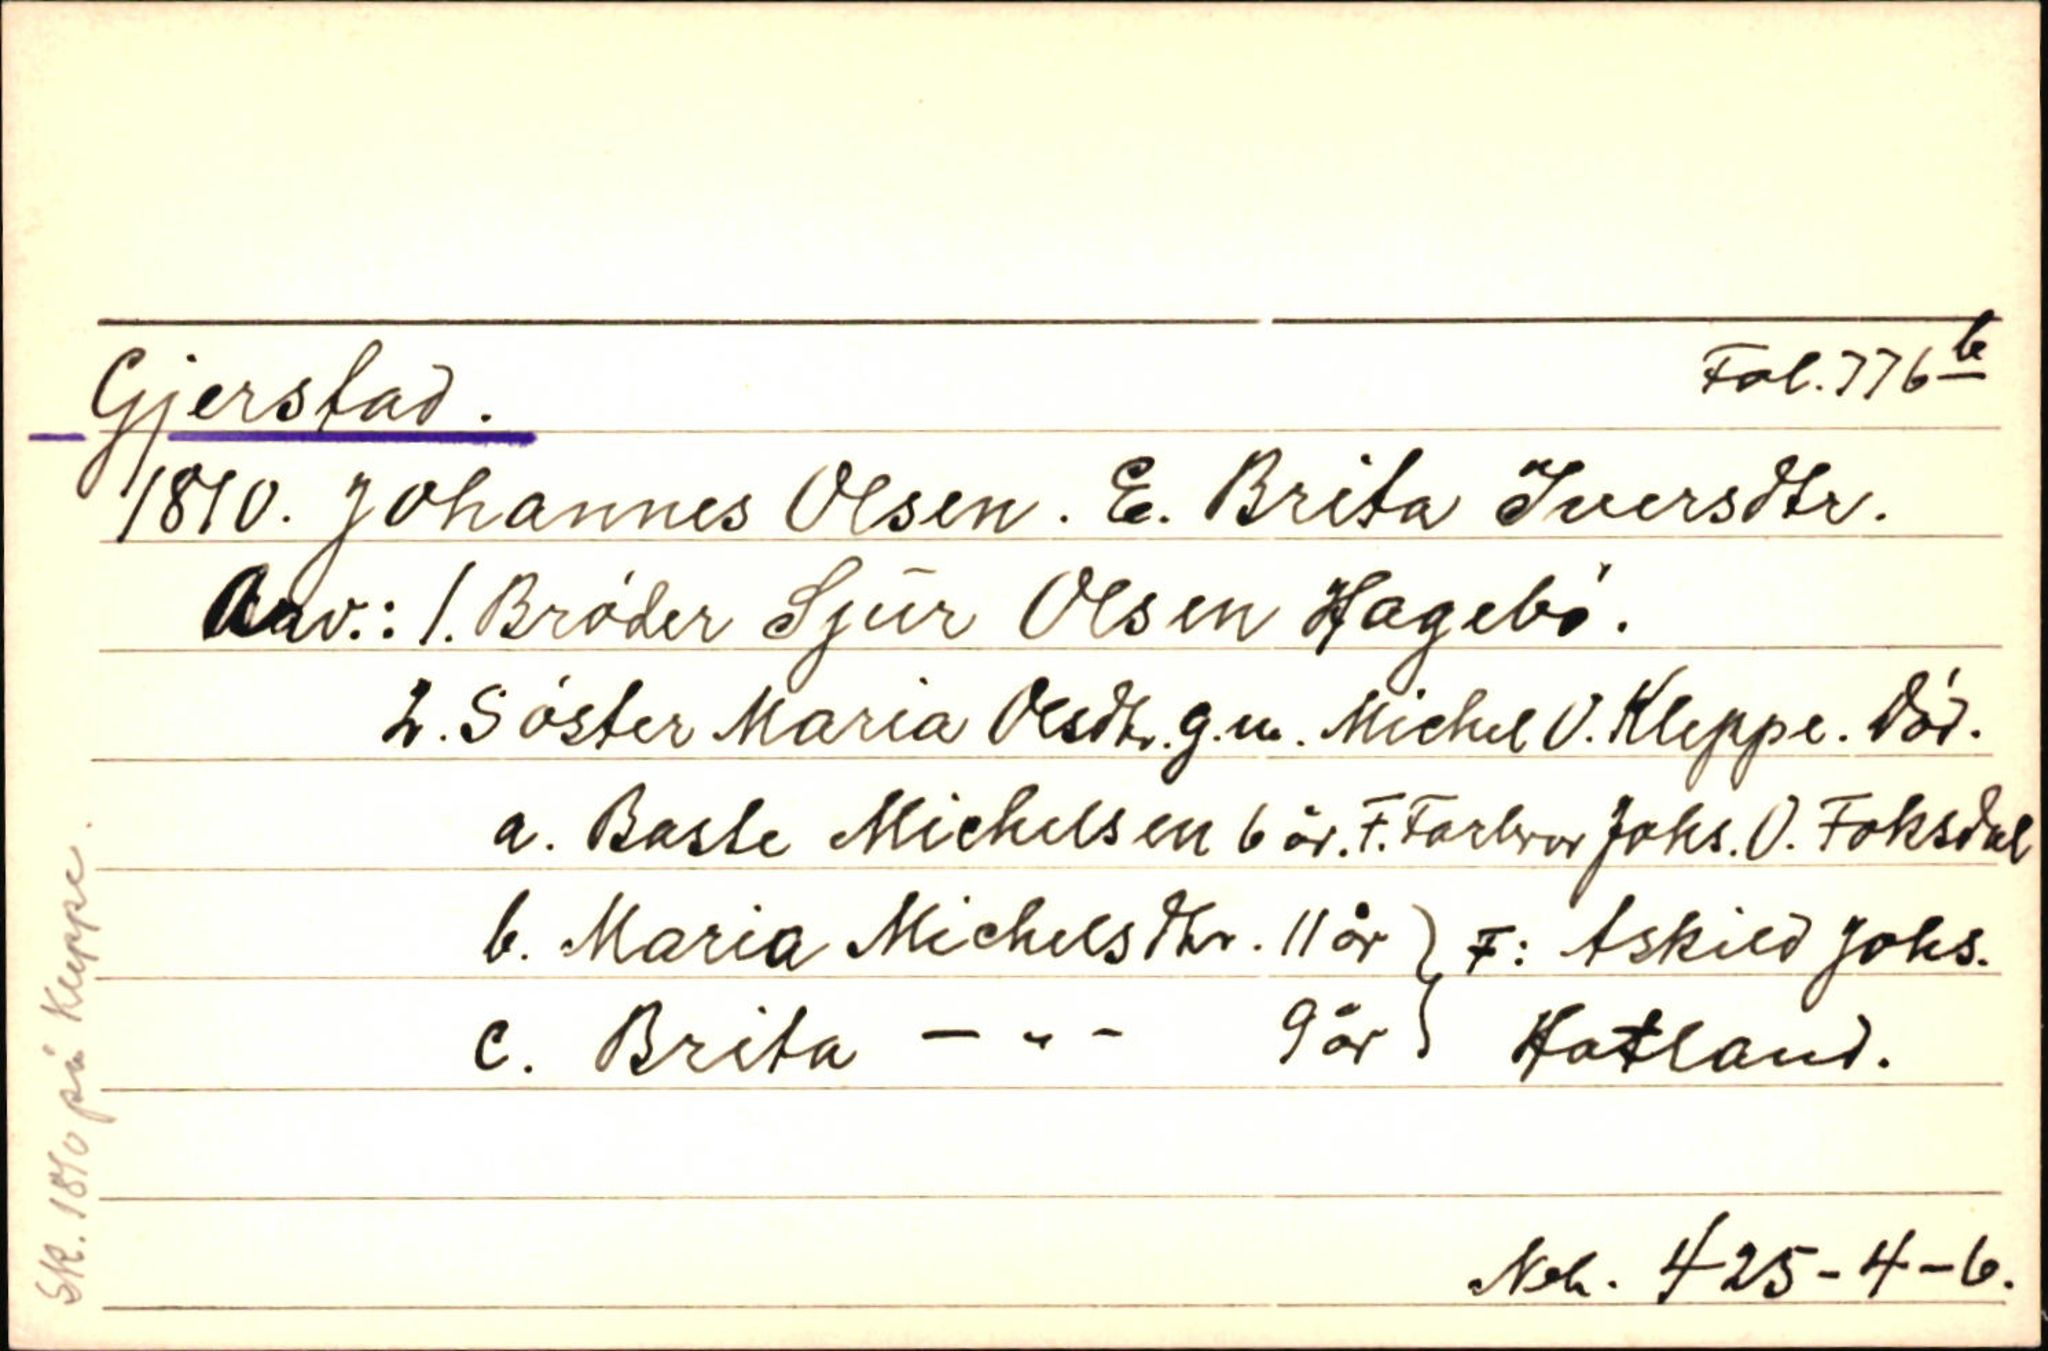 Gjerstad. Fol. 776 b
1810. Johannes Olsen. E. Brita Iversdtr.
Arv.: 1. Bróder Sjūr Olsen Hagebó.
2. Sóster Maria Olsdtr. g.m. Michel O. Kleppe. Dód.
a. Baste Michelsen 6 år. F. Farbror Johs. O. Foksdal
b. Maria Michelsdtr. 11 år } F: Askild Johs.
c. Brita — " — 9 år } Hatland.
Neh. 425-4-6.
Sk. 1810 på Kleppe.